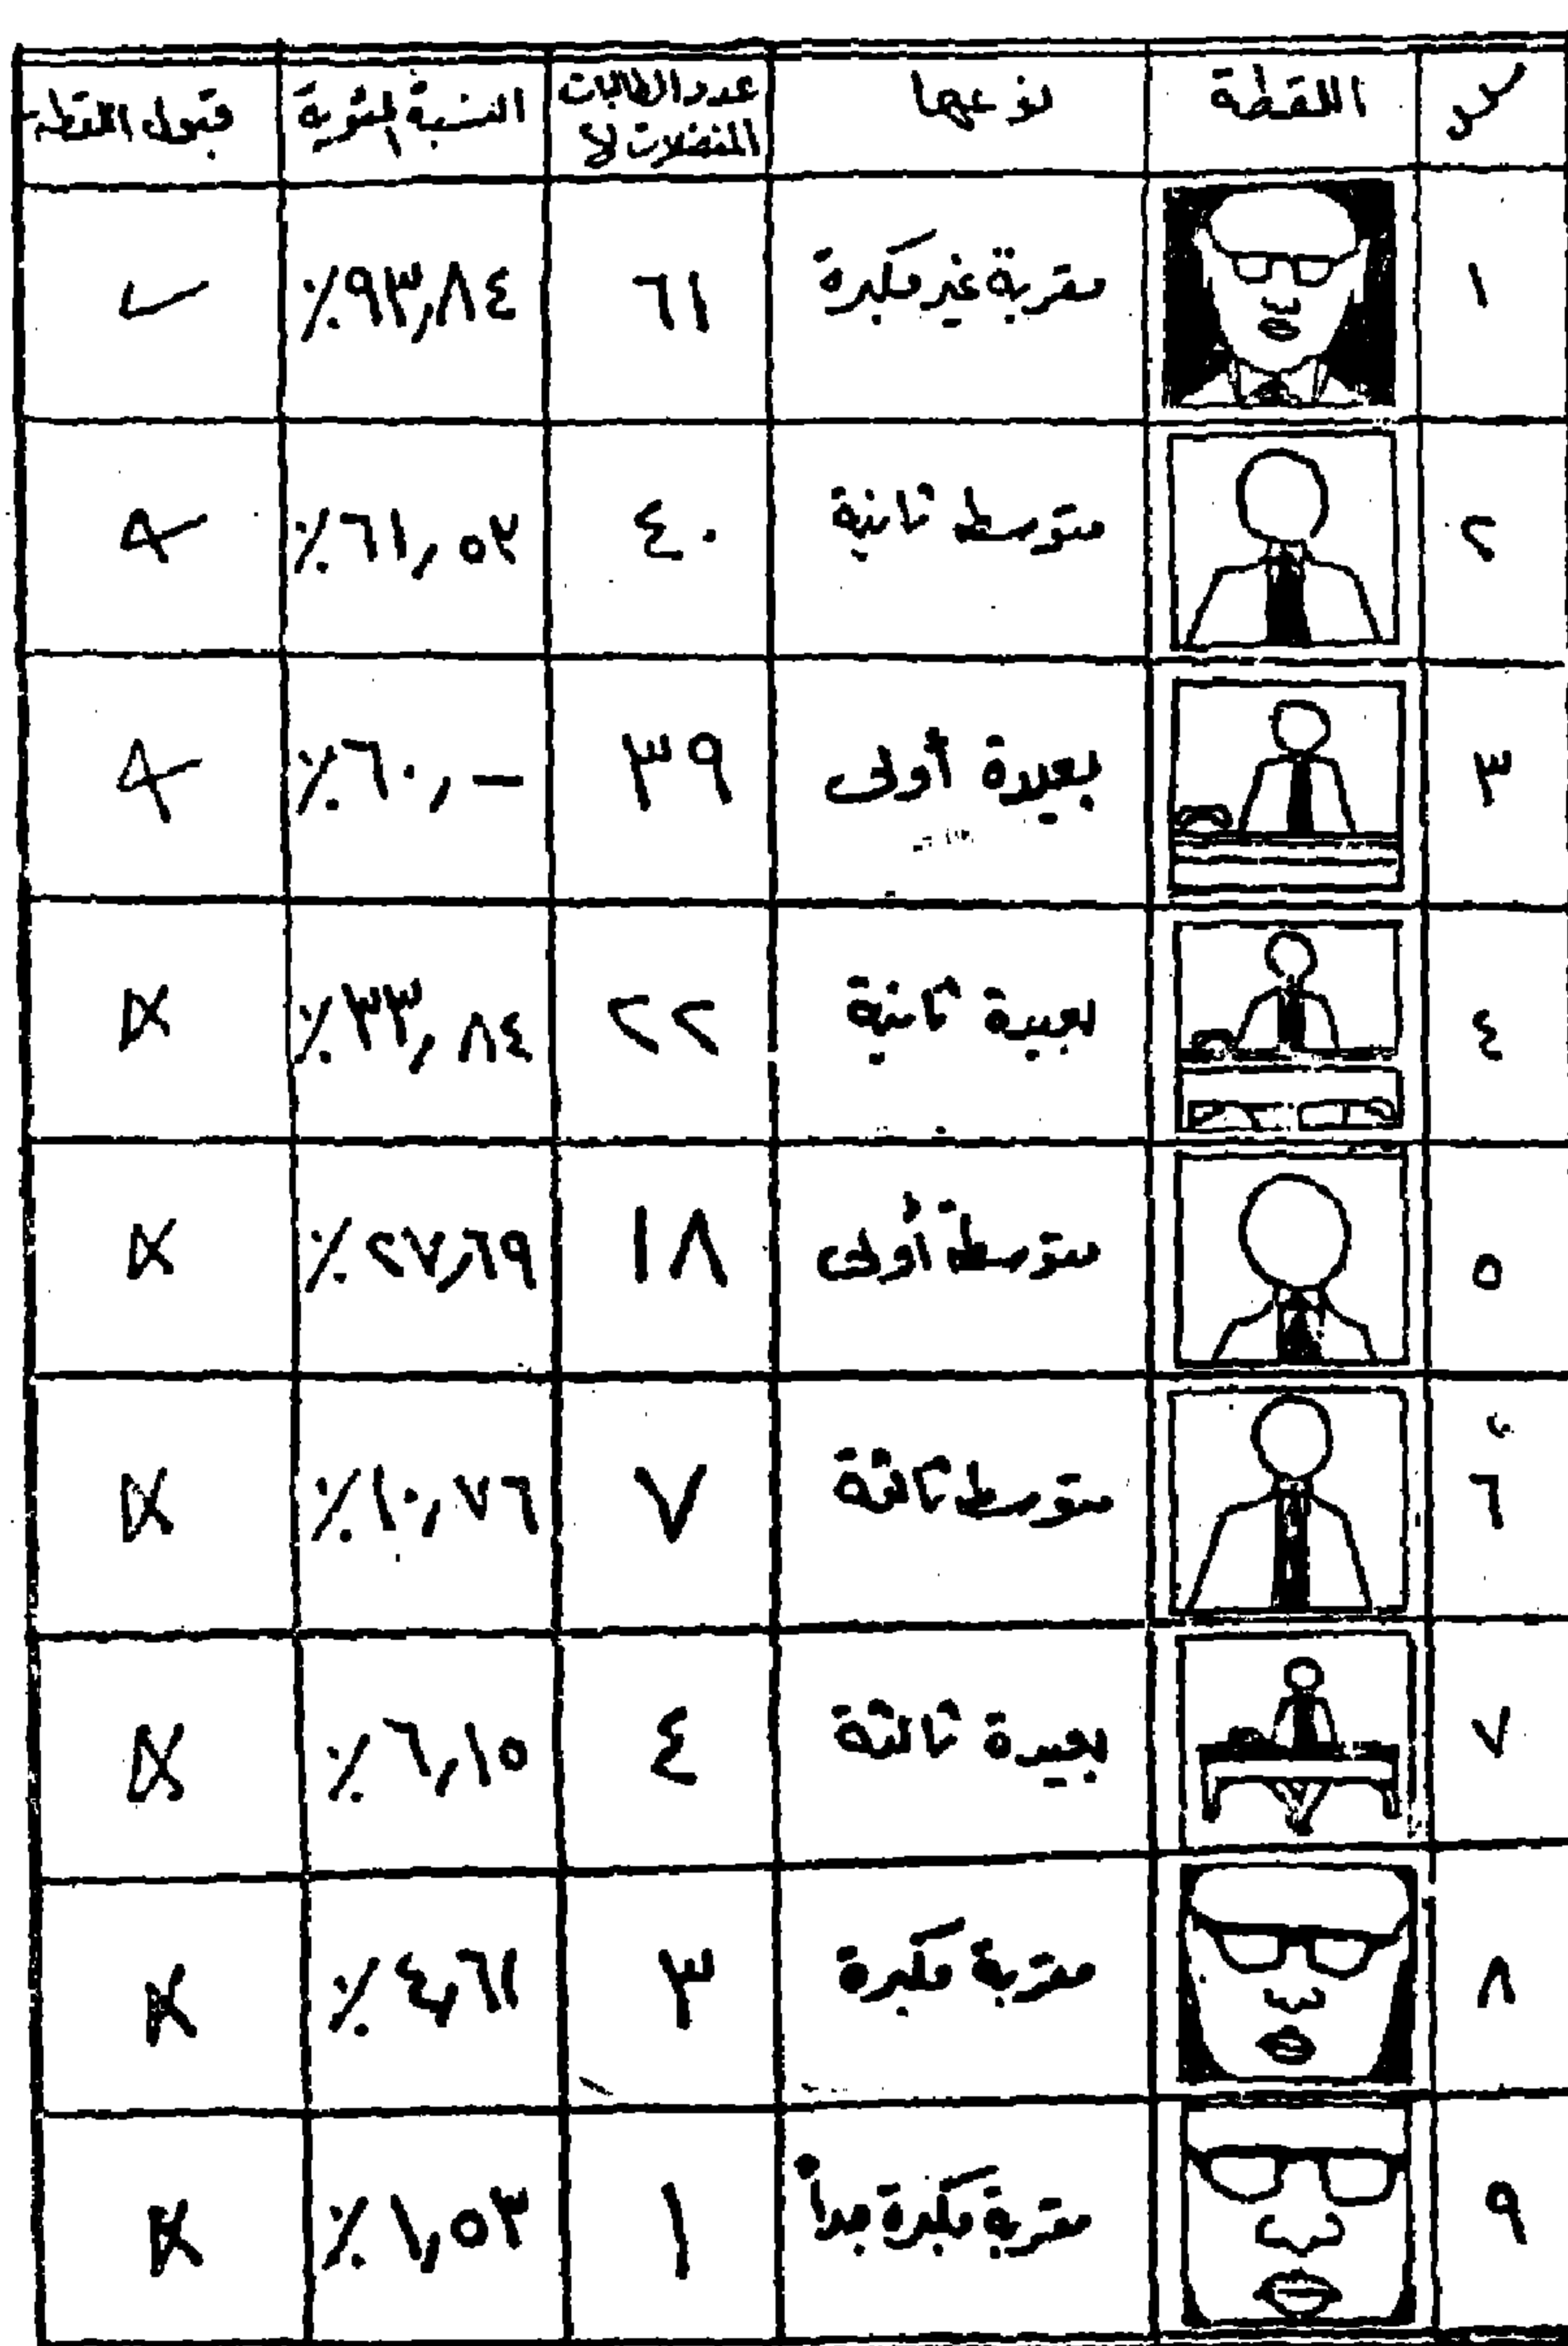 س اللقطة نوعها عدد الطالبات المفضلات لها النسبة المئوية قبول اللقطة
١ مقربة غير مكبرة ٦١ ٩٣,٨٤٪
٢ متوسطة ثانية ٤٠ ٦١,٥٣٪
٣ بعيدة أولى ٣٩ ٦٠,–٪
٤ بعيدة ثانية ٢٢ ٣٣,٨٤٪
٥ متوسطة أولى ١٨ ٢٧,٦٩٪
٦ متوسطة ثالثة ٧ ١٠,٧٦٪
٧ بعيدة ثالثة ٤ ٦,١٥٪
٨ مقربة مكبرة ٣ ٤,٦١٪
٩ مقربة مكبرة جداً ١ ١,٥٣٪